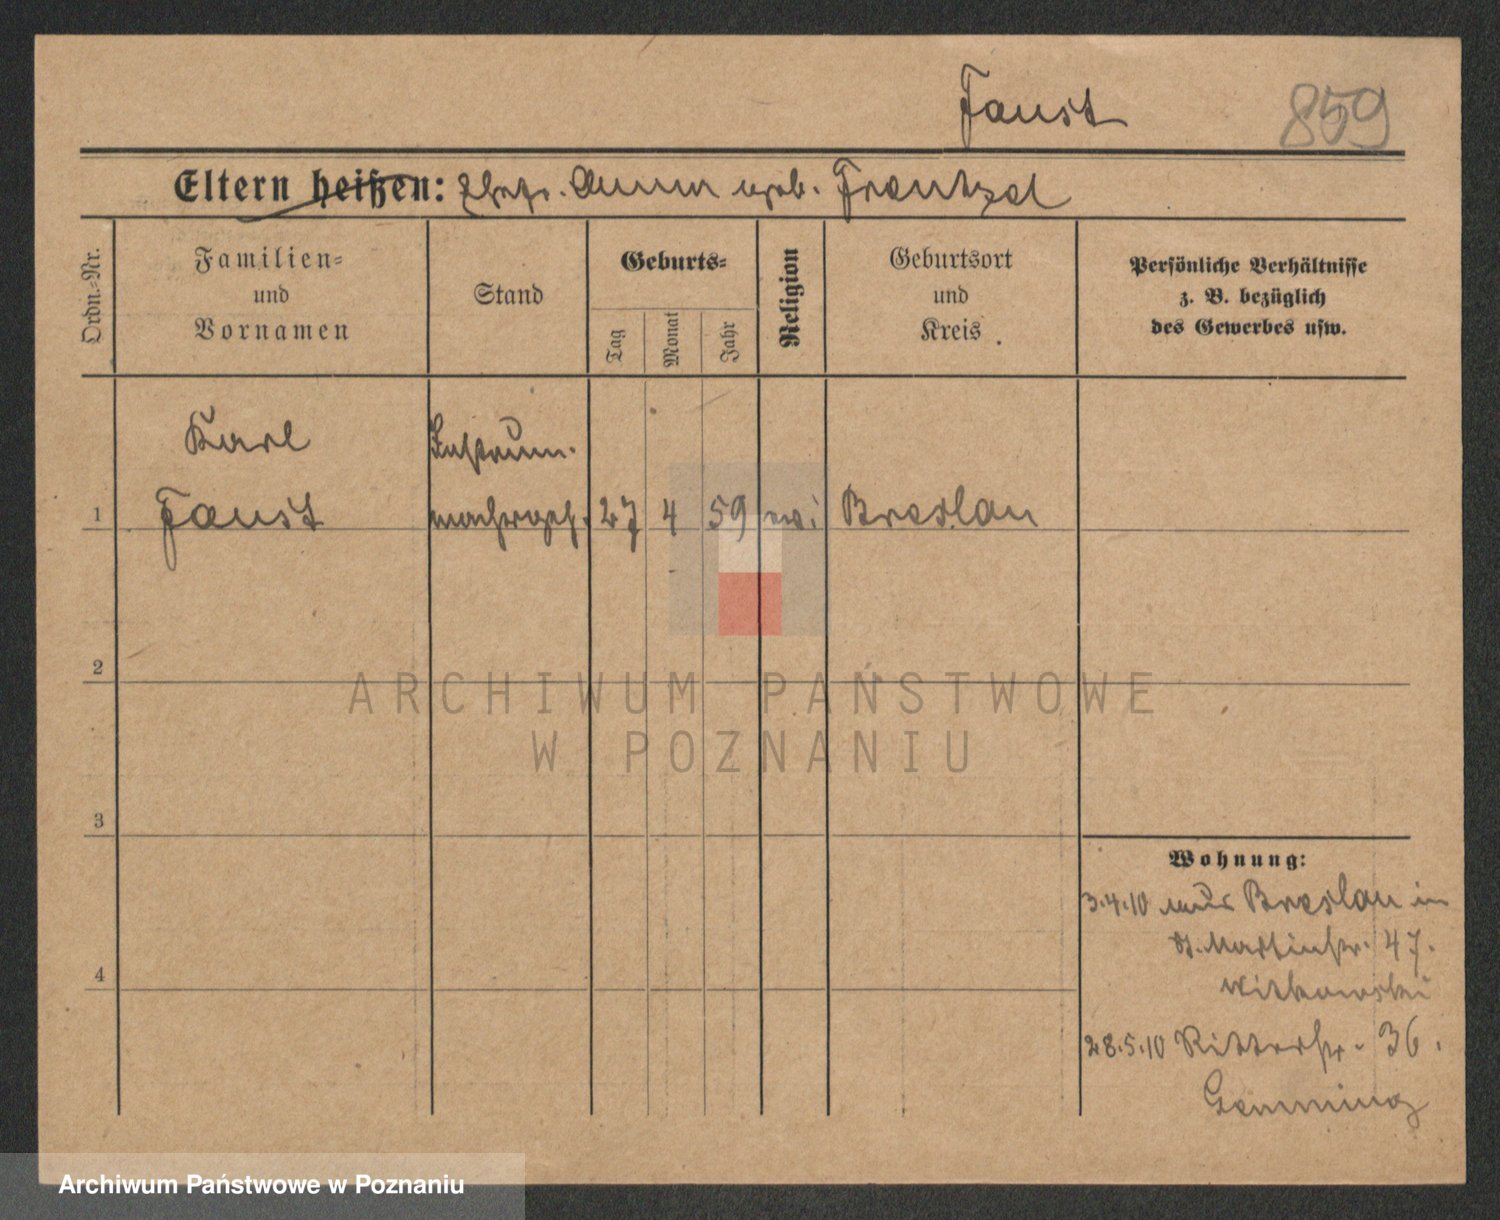 Faust 859
Eltern heißen: Ehefr. Anna geb. Frantzel
Ordn.=Nr.
Familien=
und
Vornamen
Stand
Geburts=
Tag
Monat
Jahr
Religion
Geburtsort
und
Kreis
Persönliche Verhältnisse
z. B. bezüglich
des Gewerbes usw.
Karl Instrum.
1 Faust machergeh. 27 4 59 Breslau
2
3
4
Wohnung:
3.4.10 aus Breslau in
St. Martinstr. 47.
Witkowski
28.5.10 Ritterstr. 36.
ARCHIWUM PAŃSTWOWE
W POZNANIU
Archiwum Państwowe w Poznaniu